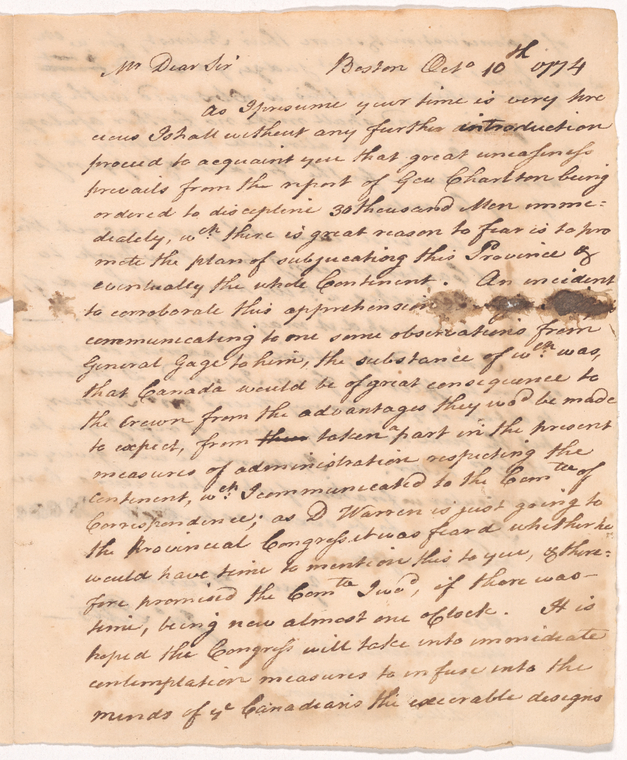 My Dear Sir Boston Octo 10th 1774
As I presume your time is very pre
cious I shall without any further introduction
proceed to acquaint you that great uneasiness
prevails from the report of Gen Charlton being
ordered to discepline 30 thousand Men imme=
diately, wch there is great reason to fear is to pro
mote the plan of subjucating this Province &
eventually the whole Continent. An incident
to corroborate this apprehension
communicating to me some observations from
General Gage to him, the substance of wch was,
that Canada would be of great consequence to
the Crown from the advantages they wod be made
to expect, from taken a part in the present
measures of administration respecting the
Continent, wch I communicated to the Comtee of
Correspondence; as D Warren is just going to
the Provincial Congress, it was feard whether he
would have time to mention this to you, & there=
fore promised the Comtee I wod, if there was
time, being now almost one Clock. It is
hoped the Congress will take into immediate
contemplation measures to infuse into the
minds of ye Canadians the execrable designs